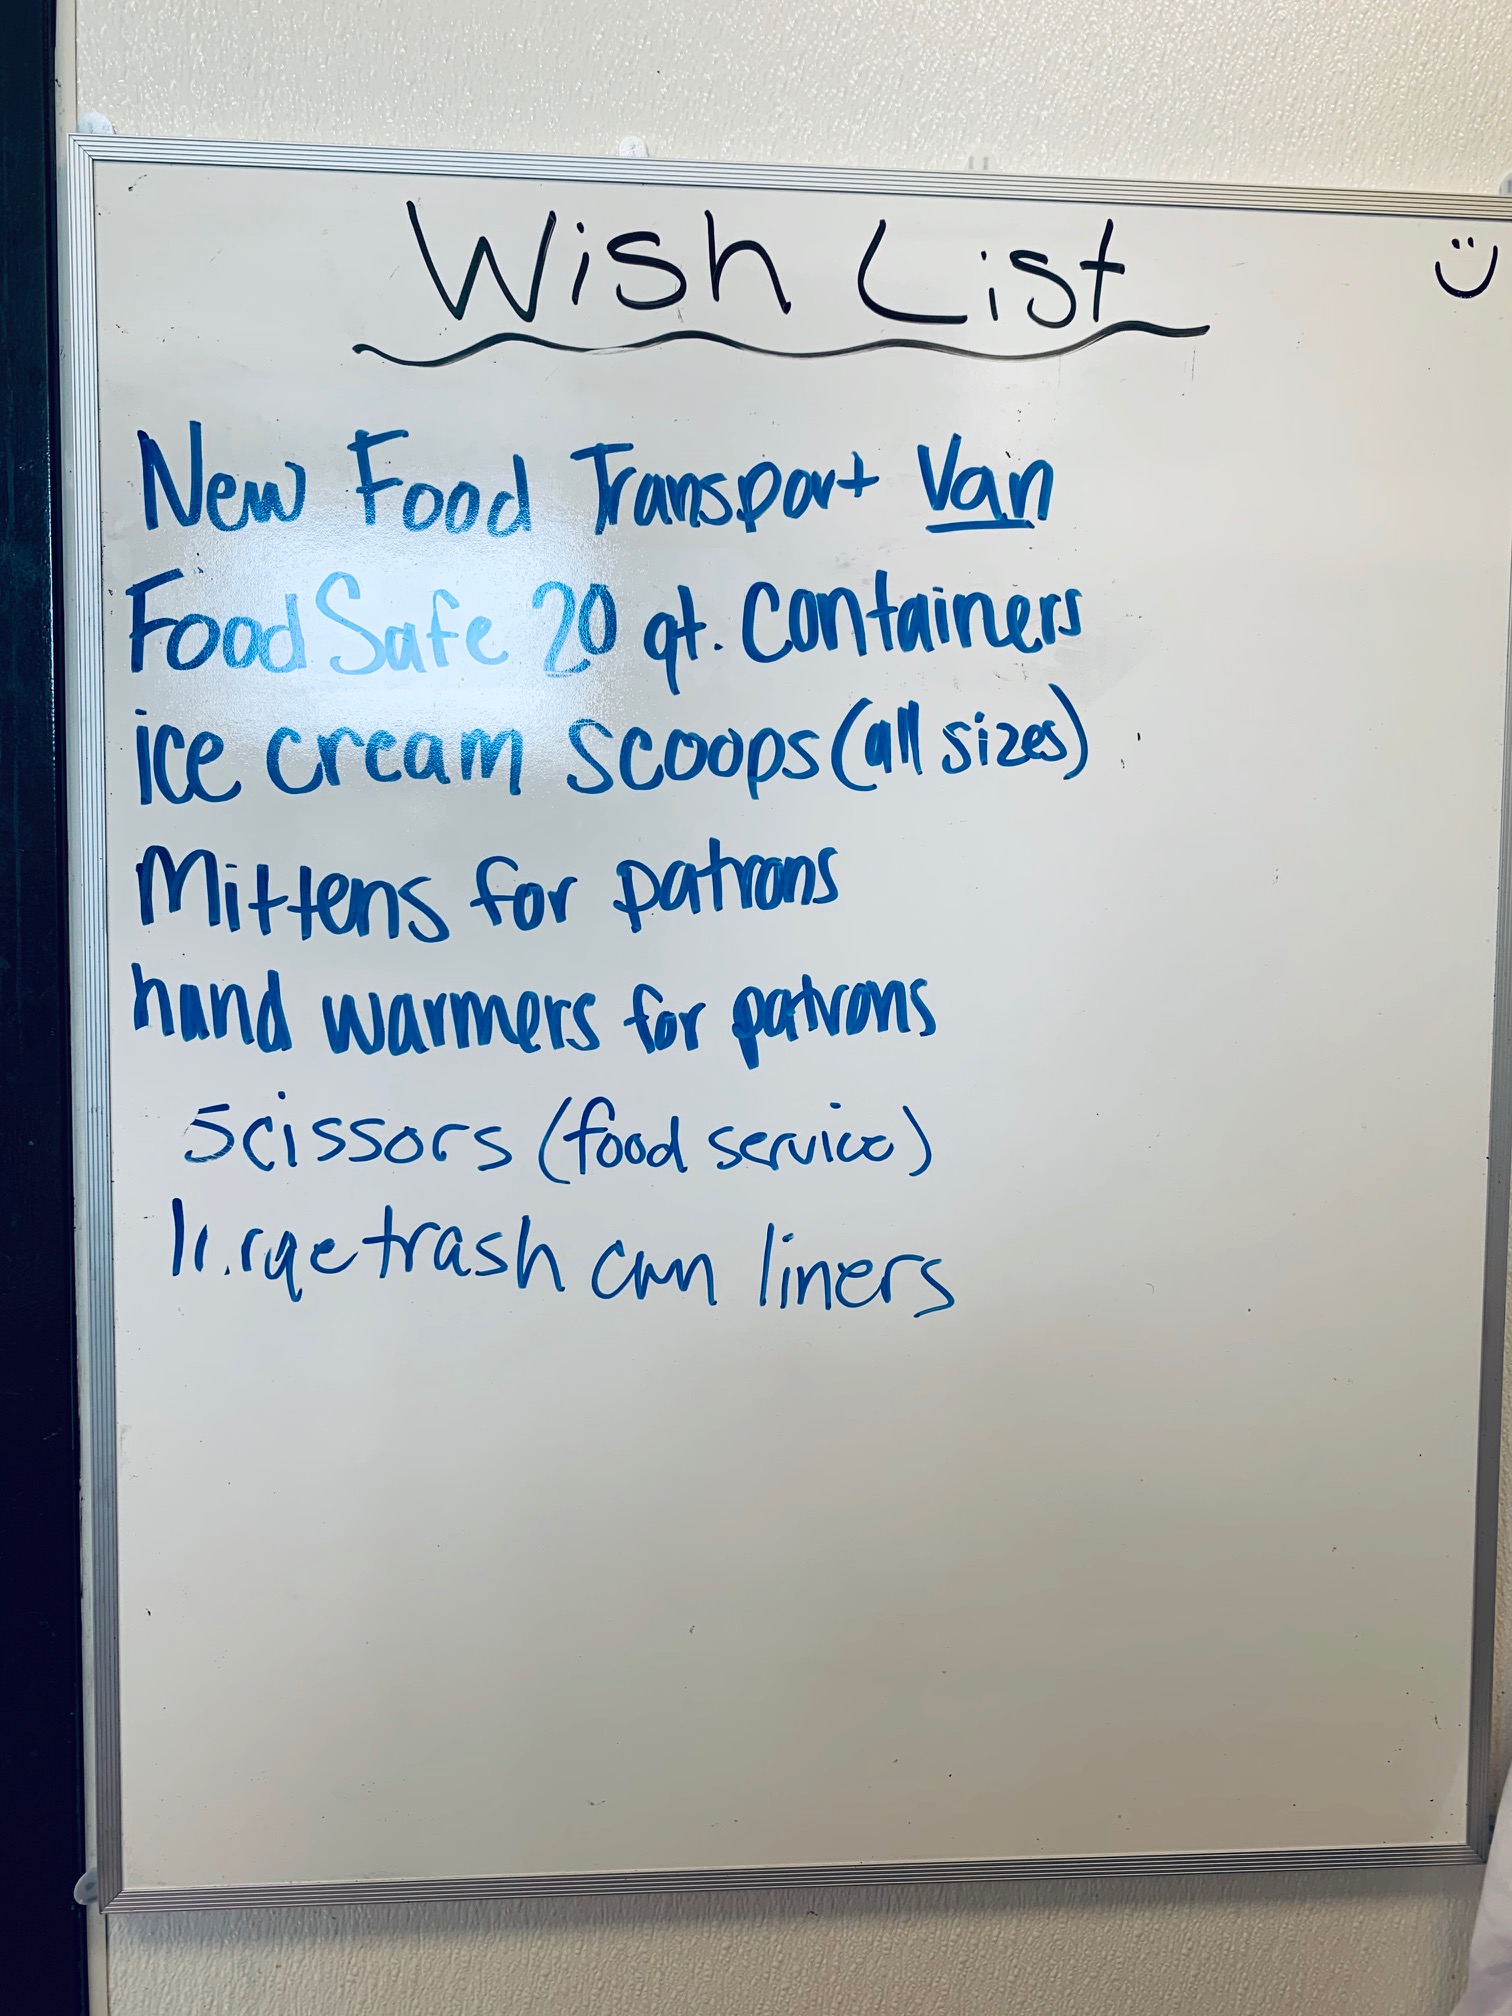 Wish List
New Food Transport Van
Food Safe 20 qt. Containers
ice cream scoops (all sizes)
Mittens for patrons
hand warmers for patrons
Scissors (food service)
large trash can liners